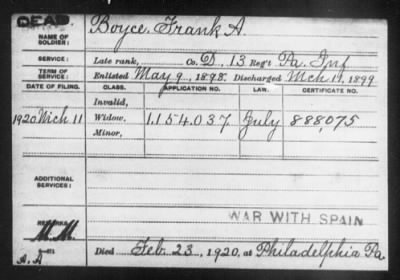 DEAD.
NAME OF SOLDIER: Boyce, Frank A.
SERVICE: Late rank, Co. D, 13 Reg't Pa. Inf
TERM OF SERVICE: Enlisted May 9, 1898, Discharged Mch 11, 1899
DATE OF FILING. CLASS. APPLICATION NO. LAW. CERTIFICATE NO.
Invalid,
1920 Mch 11 Widow, 1.154.037 July 888,075
Minor,
ADDITIONAL SERVICES:
WAR WITH SPAIN
REMARKS:
M.M.
Died Feb 23, 1920, at Philadelphia Pa